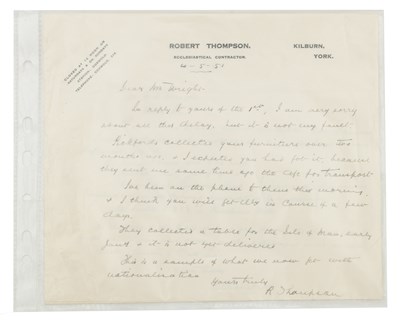 ROBERT THOMPSON.
ECCLESIASTICAL CONTRACTOR.
KILBURN,
YORK.
4-5-51
Dear Mr Wright
In reply to yours of the 1st, I am very sorry
about all this delay, but it is not my fault.
collected your furniture over two
months ago, & I expected you had got it because
they sent me some time ago the for transport
Ive been on the phone to them this morning,
& I think you will get it in course of a few
days.
They collected a table for the Isle of Man, early
& it is not yet delivered
This is a sample of what we now get with
nationalisation
Yours truly
R Thompson